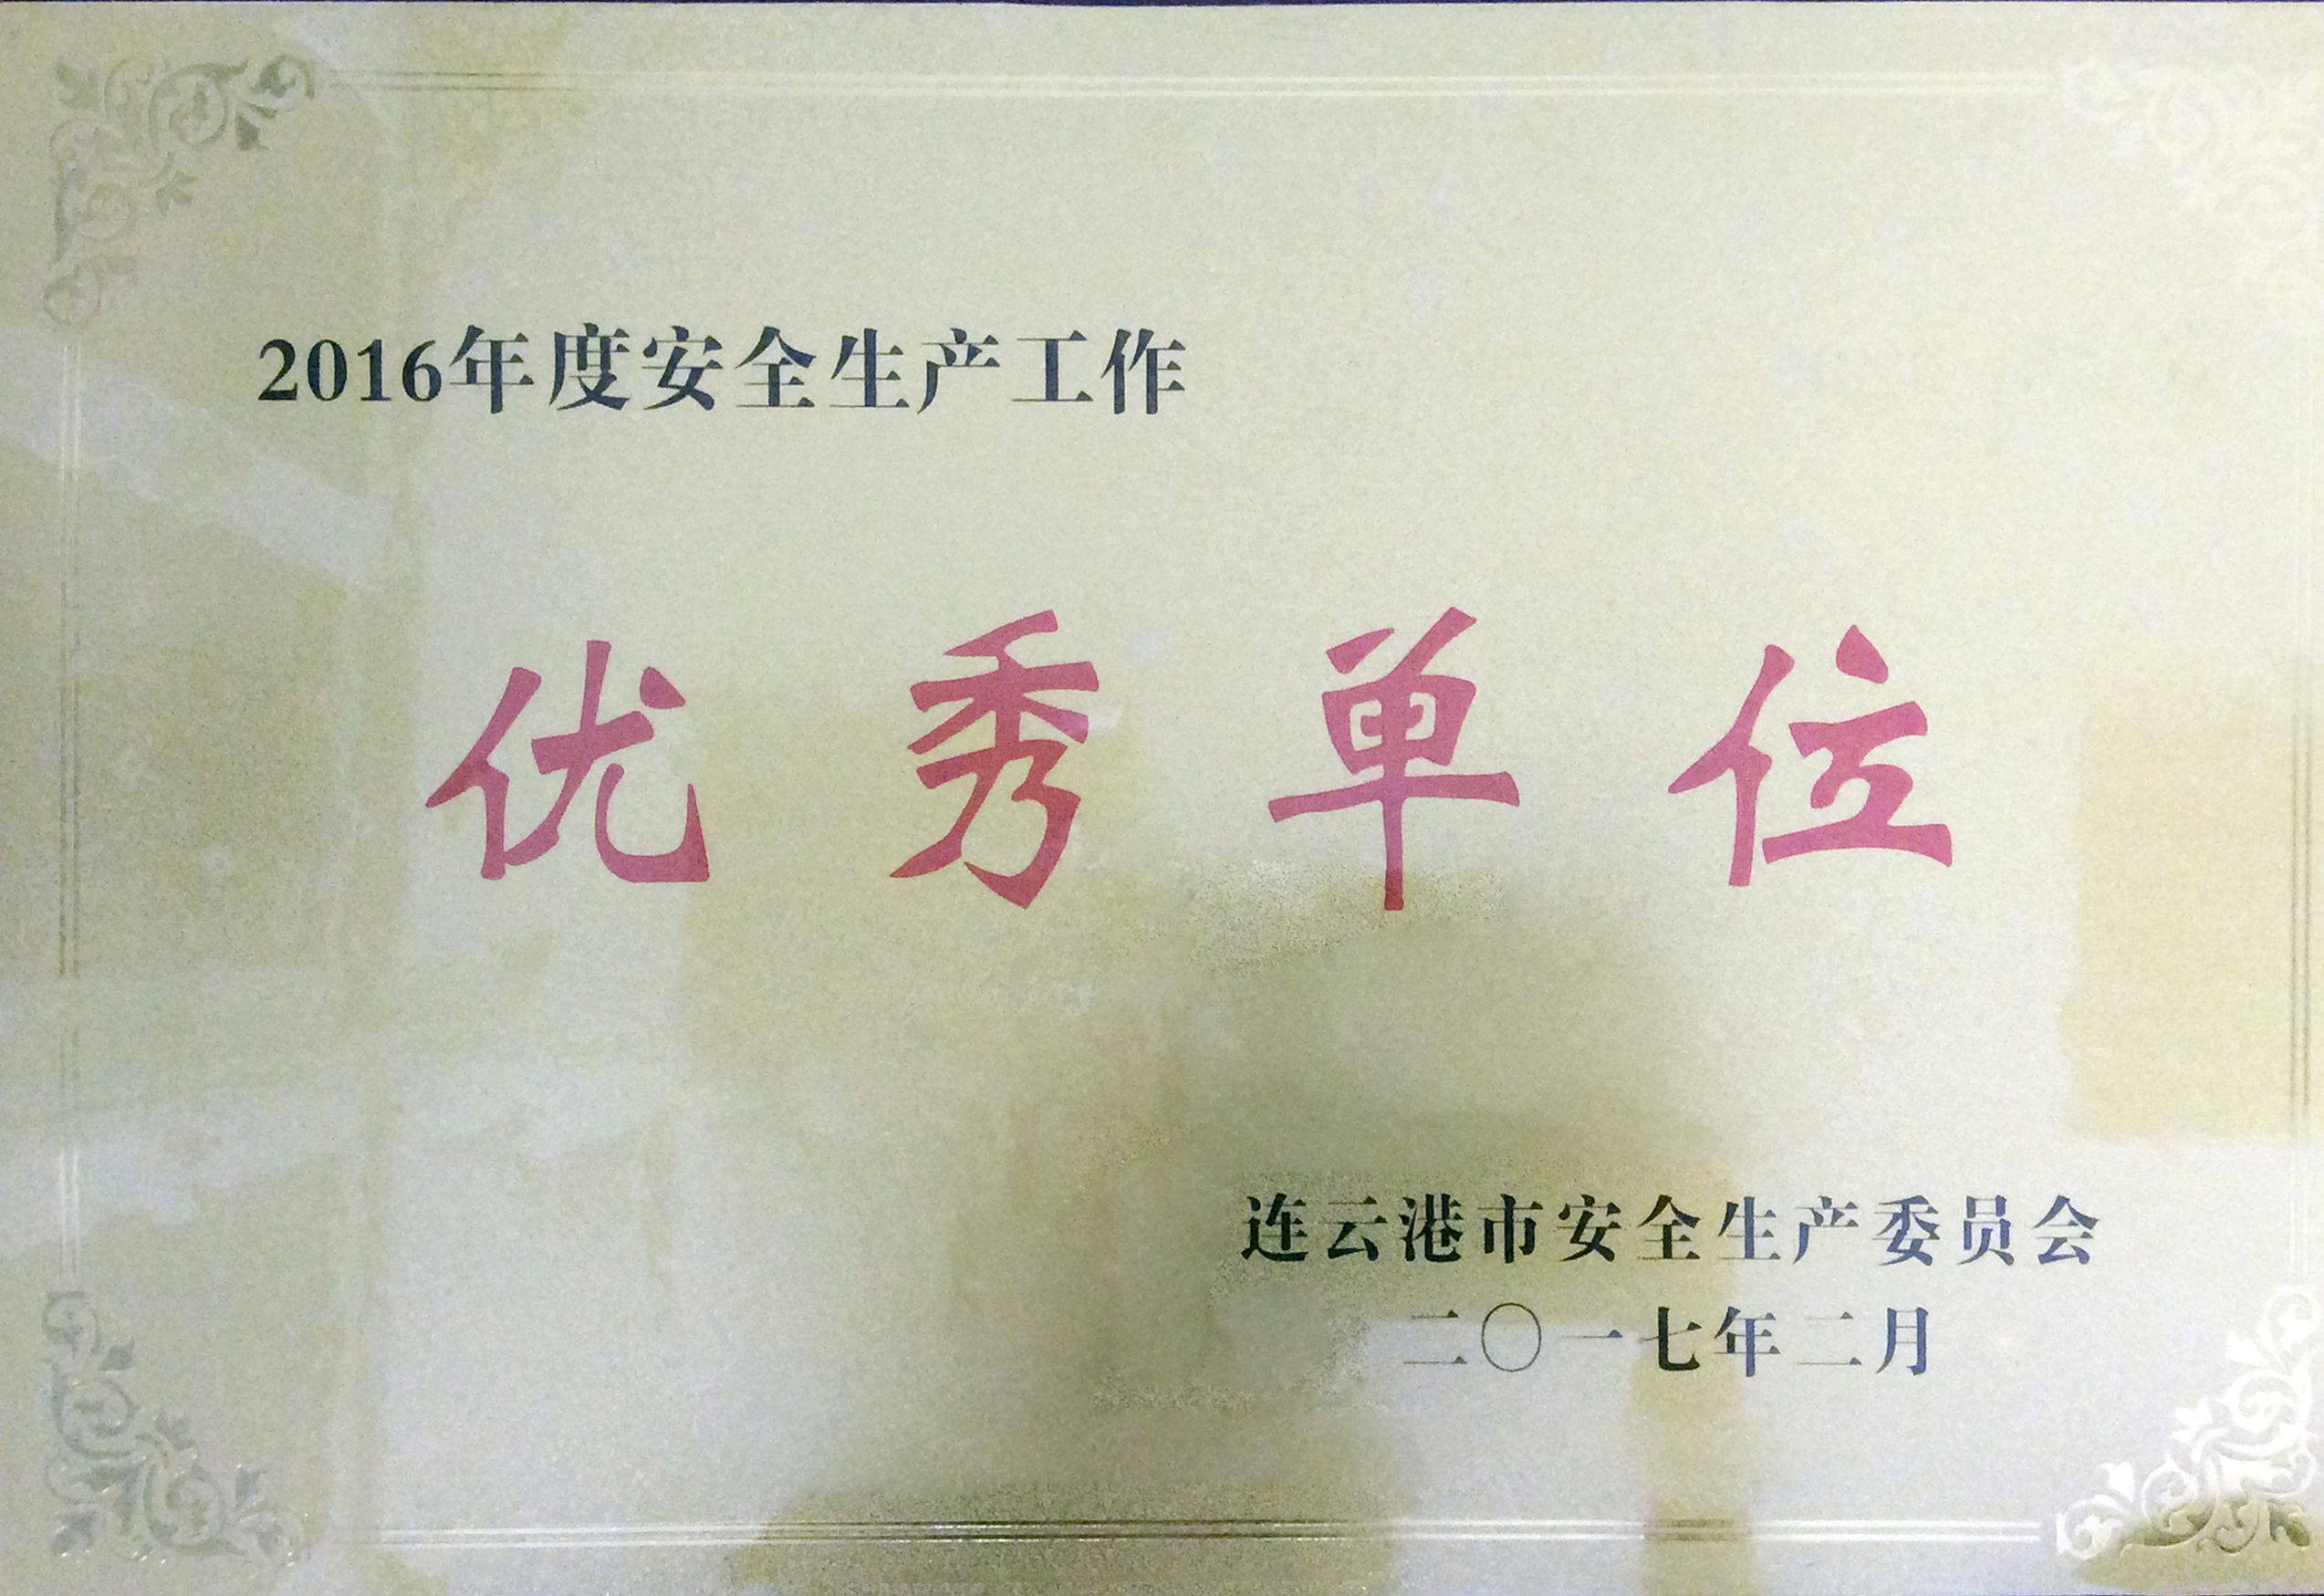 2016年度安全生产工作
优秀单位
连云港市安全生产委员会
二〇一七年二月